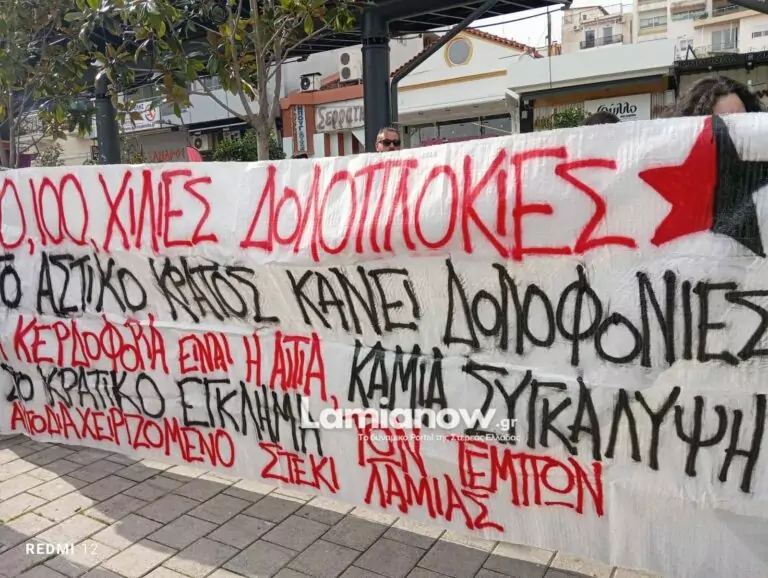 0, 100, ΧΙΛΙΕΣ ΔΟΛΟΠΛΟΚΙΕΣ
ΤΟ ΑΣΤΙΚΟ ΚΡΑΤΟΣ ΚΑΝΕΙ ΔΟΛΟΦΟΝΙΕΣ
ΚΕΡΔΟΦΟΡΙΑ ΕΙΝΑΙ Η ΑΙΤΙΑ, ΚΑΜΙΑ ΣΥΓΚΑΛΥΨΗ
ΣΤΟ ΚΡΑΤΙΚΟ ΕΓΚΛΗΜΑ ΤΩΝ ΤΕΜΠΩΝ
ΑΥΤΟΔΙΑΧΕΙΡΙΖΟΜΕΝΟ ΣΤΕΚΙ ΛΑΜΙΑΣ
Lamianow.gr
Το δυναμικό Portal της Στερεάς Ελλάδας
REDMI 12